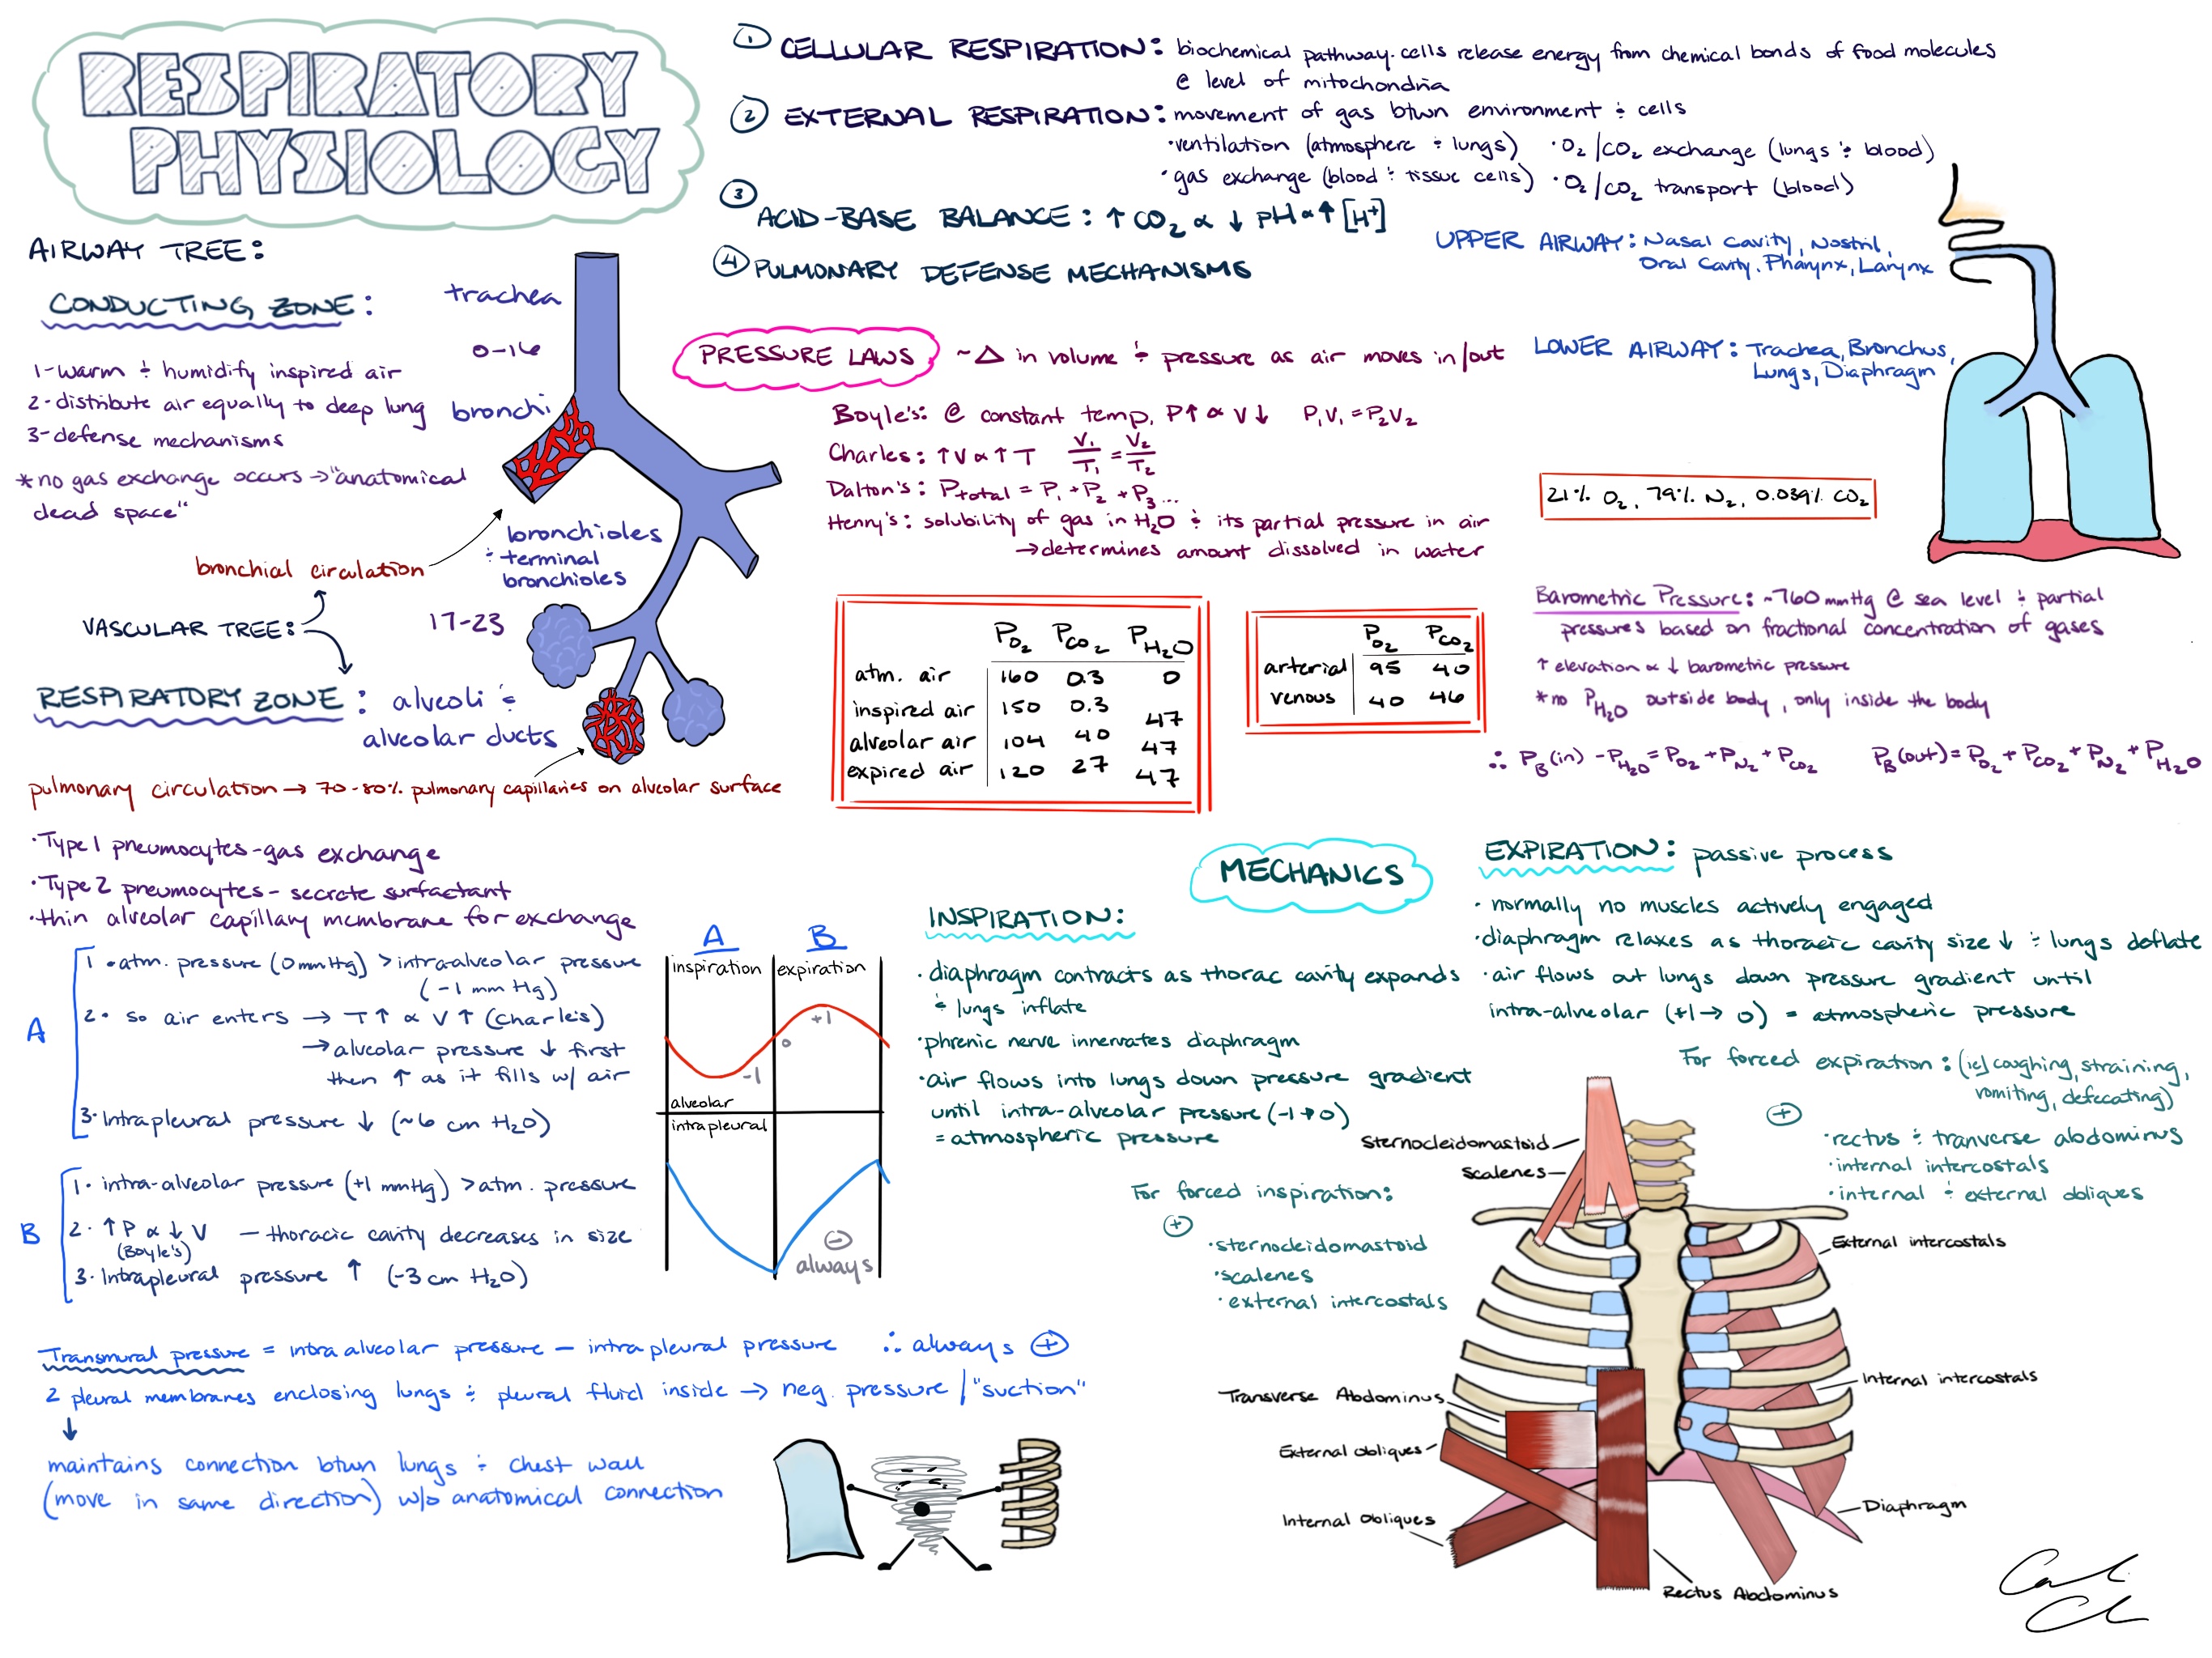 RESPIRATORY
PHYSIOLOGY
① CELLULAR RESPIRATION: biochemical pathway. cells release energy from chemical bonds of food molecules
@ level of mitochondria
② EXTERNAL RESPIRATION: movement of gas btwn environment ÷ cells
•ventilation (atmosphere ÷ lungs) •O₂/CO₂ exchange (lungs ÷ blood)
•gas exchange (blood ÷ tissue cells) •O₂/CO₂ transport (blood)
③ ACID-BASE BALANCE: ↑ CO₂ ∝ ↓ pH ∝ ↑ [H⁺]
④ PULMONARY DEFENSE MECHANISMS
UPPER AIRWAY: Nasal Cavity, Nostril,
Oral Cavity, Pharynx, Larynx
LOWER AIRWAY: Trachea, Bronchus,
Lungs, Diaphragm
AIRWAY TREE:
CONDUCTING ZONE:
trachea
0-16
1-warm ÷ humidify inspired air
2-distribute air equally to deep lung
3-defense mechanisms
bronchi
*no gas exchange occurs → "anatomical
dead space"
bronchioles
÷ terminal
bronchioles
bronchial circulation
VASCULAR TREE:
17-23
RESPIRATORY ZONE: alveoli ÷
alveolar ducts
pulmonary circulation → 70-80% pulmonary capillaries on alveolar surface
•Type 1 pneumocytes-gas exchange
•Type 2 pneumocytes- secrete surfactant
•thin alveolar capillary membrane for exchange
PRESSURE LAWS ~ Δ in volume ÷ pressure as air moves in/out
Boyle's: @ constant temp, P↑ ∝ V↓ P₁V₁ = P₂V₂
Charles: ↑V ∝ ↑T V₁/T₁ = V₂/T₂
Dalton's: Ptotal = P₁ + P₂ + P₃...
Henry's: solubility of gas in H₂O ÷ its partial pressure in air
→ determines amount dissolved in water
21% O₂, 79% N₂, 0.039% CO₂
PO₂ PCO₂ PH₂O
atm. air 160 0.3 0
inspired air 150 0.3 47
alveolar air 104 40 47
expired air 120 27 47
PO₂ PCO₂
arterial 95 40
venous 40 46
Barometric Pressure: ~760 mmHg @ sea level ÷ partial
pressures based on fractional concentration of gases
↑ elevation ∝ ↓ barometric pressure
*no PH₂O outside body, only inside the body
∴ PB(in) - PH₂O = PO₂ + PN₂ + PCO₂ PB(out) = PO₂ + PCO₂ + PN₂ + PH₂O
A
1 • atm. pressure (0mmHg) > intraalveolar pressure
(-1 mm Hg)
2• so air enters → T↑ ∝ V↑ (Charle's)
→ alveolar pressure ↓ first
then ↑ as it fills w/ air
3• Intrapleural pressure ↓ (~6 cm H₂O)
B
1• intra-alveolar pressure (+1 mmHg) > atm. pressure
2• ↑P ∝ ↓V — thoracic cavity decreases in size
(Boyle's)
3• Intrapleural pressure ↑ (-3 cm H₂O)
A B
inspiration expiration
+1
0
-1
alveolar
intrapleural
⊖
always
Transmural pressure = intraalveolar pressure — intrapleural pressure ∴ always ⊕
2 pleural membranes enclosing lungs ÷ pleural fluid inside → neg. pressure / "suction"
↓
maintains connection btwn lungs ÷ chest wall
(move in same direction) w/o anatomical connection
MECHANICS
INSPIRATION:
• diaphragm contracts as thorac cavity expands
÷ lungs inflate
•phrenic nerve innervates diaphragm
•air flows into lungs down pressure gradient
until intra-alveolar pressure (-1→0)
= atmospheric pressure
For forced inspiration:
⊕
•sternocleidomastoid
•scalenes
•external intercostals
EXPIRATION: passive process
• normally no muscles actively engaged
•diaphragm relaxes as thoracic cavity size ↓ ÷ lungs deflate
•air flows out lungs down pressure gradient until
intra-alveolar (+1→ 0) = atmospheric pressure
For forced expiration: (ie) coughing, straining,
vomiting, defecating)
⊕
•rectus ÷ tranverse abdominus
•internal intercostals
•internal ÷ external obliques
Sternocleidomastoid
Scalenes
External intercostals
Internal intercostals
Transverse Abdominus
External Obliques
Internal Obliques
Diaphragm
Rectus Abdominus